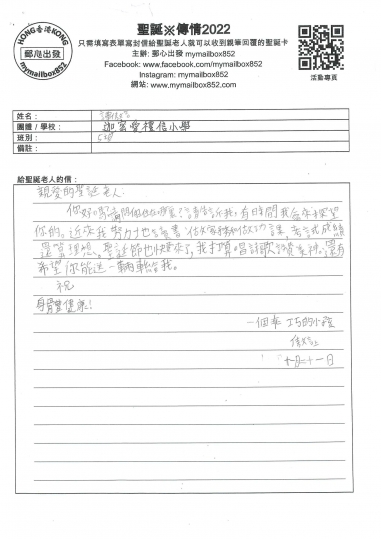 HONG香港KONG
郵心出發
mymailbox852
聖誕※傳情2022
只需填寫表單寫封信給聖誕老人就可以收到親筆回覆的聖誕卡
主辦: 郵心出發 MyMailbox852
Facebook: www.facebook.com/mymailbox852
Instagram: mymailbox852
網站: www.mymailbox852.com
活動專頁
姓名:
團體 / 學校: 迦密愛禮信小學
班別:
備註:
給聖誕老人的信:
親愛的聖誕老人:
你好嗎?請問你住在哪裏?請告訴我,有時間我會來探望
你的。近來我努力地讀書、做家務和做功課,考試成績
還算理想。聖誕節也快來了,我打算唱詩歌讚美神。還有
希望你能送一輛車給我。
祝
身體健康!
一個乖巧的小孩
上
十一日